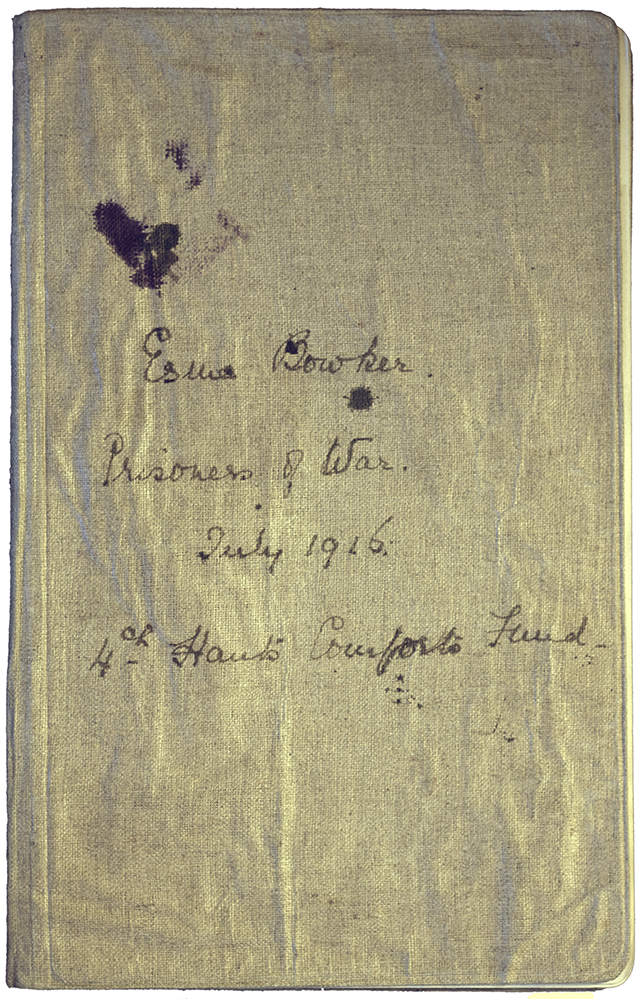 Esme Bowker.
Prisoners of War.
July 1916.
4th Hants Comforts Fund-